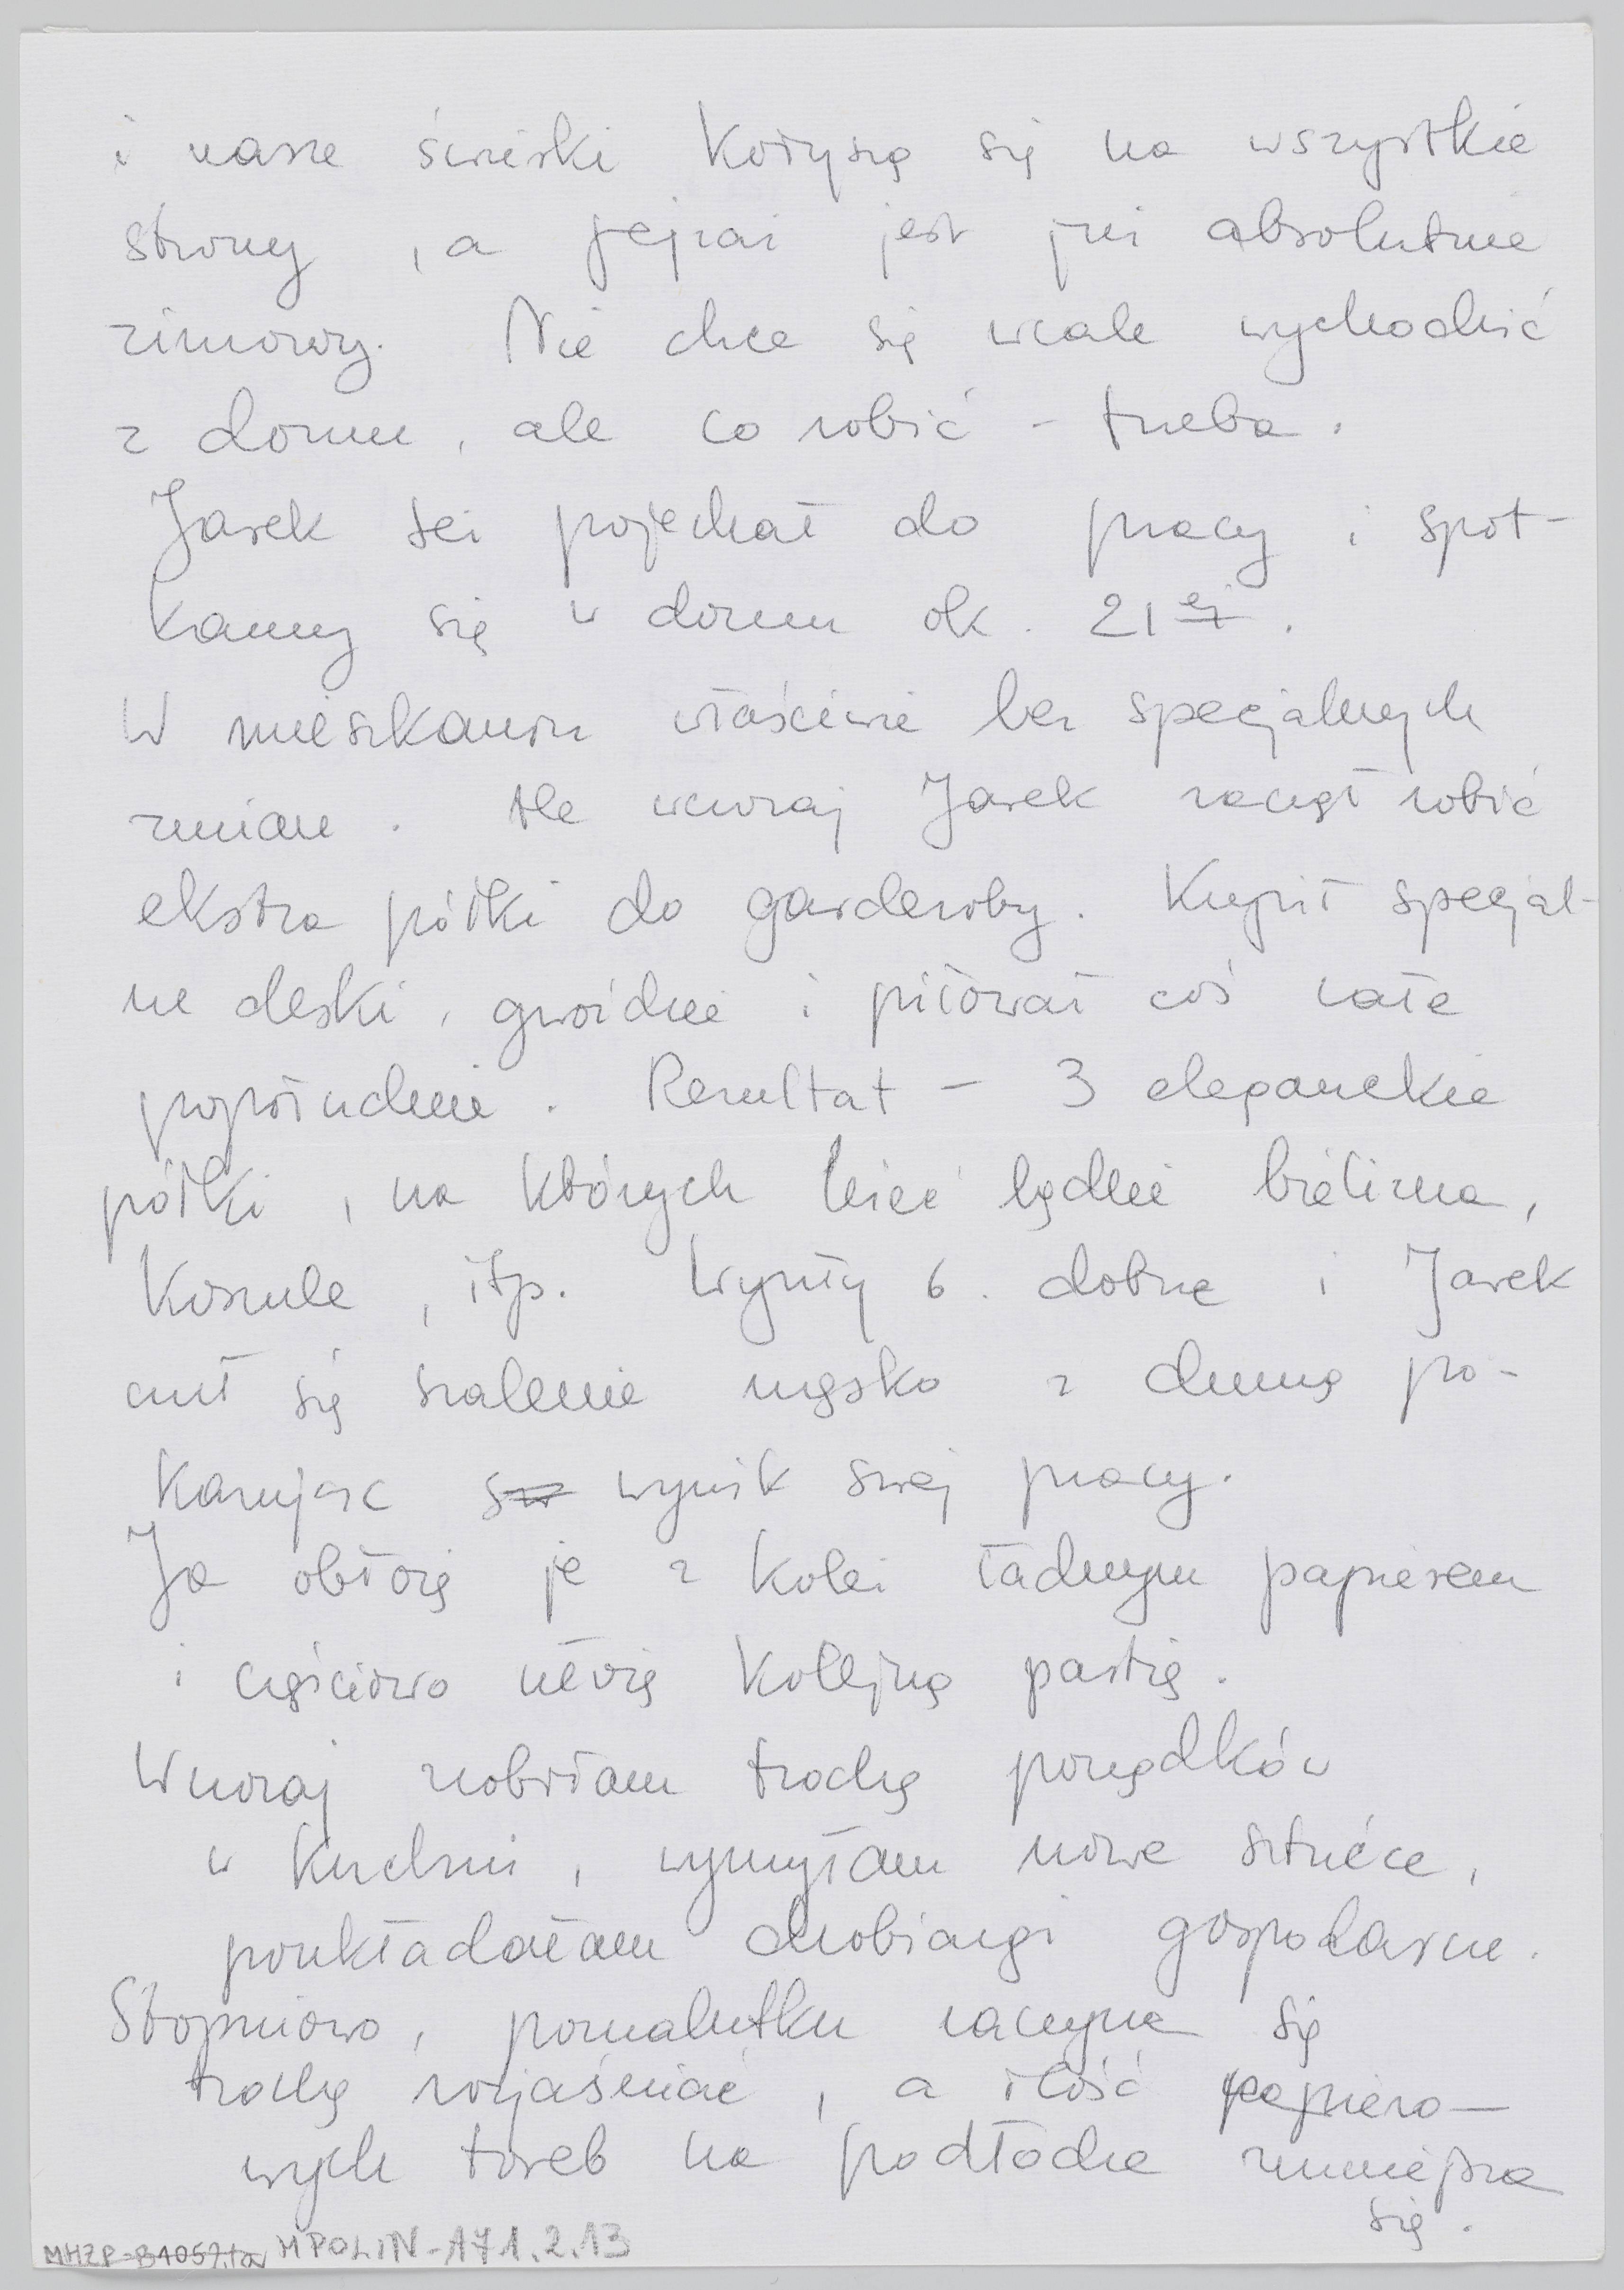 i nasze świerki kołyszą się na wszystkie
strony, a pejzaż jest już absolutnie
zimowy. Nie chce się wcale wychodzić
z domu, ale co robić - trzeba.
Jarek też pojechał do pracy i spot-
kamy się w domu ok. 21 ej.
W mieszkaniu właściwie bez specjalnych
zmian. Ale wczoraj Jarek zaczął robić
ekstra półki do garderoby. Kupił specjal-
ne deski, gwoździe i piłował coś całe
popołudnie. Rezultat - 3 eleganckie
półki, na których leżeć będzie bielizna,
koszule, itp. Wyszły b. dobrze i Jarek
czuł się szalenie męsko z dumą po-
kazując sw wynik swej pracy.
Ja obłożę je z kolei ładnym papierem
i częściowo ułożę kolejną partię.
Wczoraj zrobiłam trochę porządków
w kuchni, wymyłam nowe sztućce,
poukładałam drobiazgi gospodarcze.
Stopniowo, pomalutku zaczyna się
trochę rozjaśniać, a ilość papiero-
wych toreb na podłodze zmniejsza
się.
MHZP-B405 MPOLIN-A71.2.13